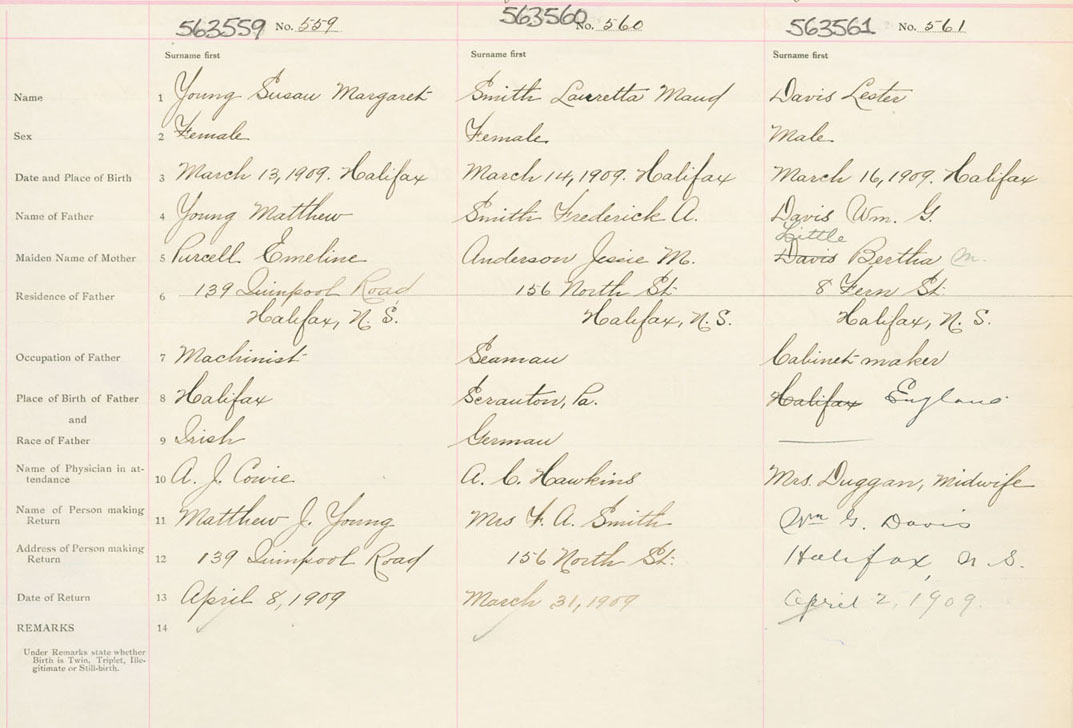 563559 No. 559 563560 No. 560 563561 No. 561
Surname first Surname first Surname first
Name 1 Young Susan Margaret Smith Lauretta Maud Davis Lester
Sex 2 Female Female Male
Date and Place of Birth 3 March 13, 1909. Halifax March 14, 1909. Halifax March 16, 1909. Halifax
Name of Father 4 Young Matthew Smith Frederick A. Davis Wm. G.
Little
Maiden Name of Mother 5 Purcell Emeline Anderson Jessie M. Davis Bertha M.
Residence of Father 6 139 Quinpool Road 156 North St. 8 Fern St.
Halifax, N. S. Halifax, N. S. Halifax, N. S.
Occupation of Father 7 Machinist Seaman Cabinet maker
Place of Birth of Father 8 Halifax Scranton, Pa. Halifax England
and
Race of Father 9 Irish German
Name of Physician in at-
tendance 10 A. J. Cowie A. C. Hawkins Mrs. Duggan, midwife
Name of Person making
Return 11 Matthew J. Young Mrs F. A. Smith Wm G. Davis
Address of Person making
Return 12 139 Quinpool Road 156 North St. Halifax, N. S.
Date of Return 13 April 8, 1909 March 31, 1909 April 2, 1909.
REMARKS 14
Under Remarks state whether
Birth is Twin, Triplet, Ille-
gitimate or Still-birth.